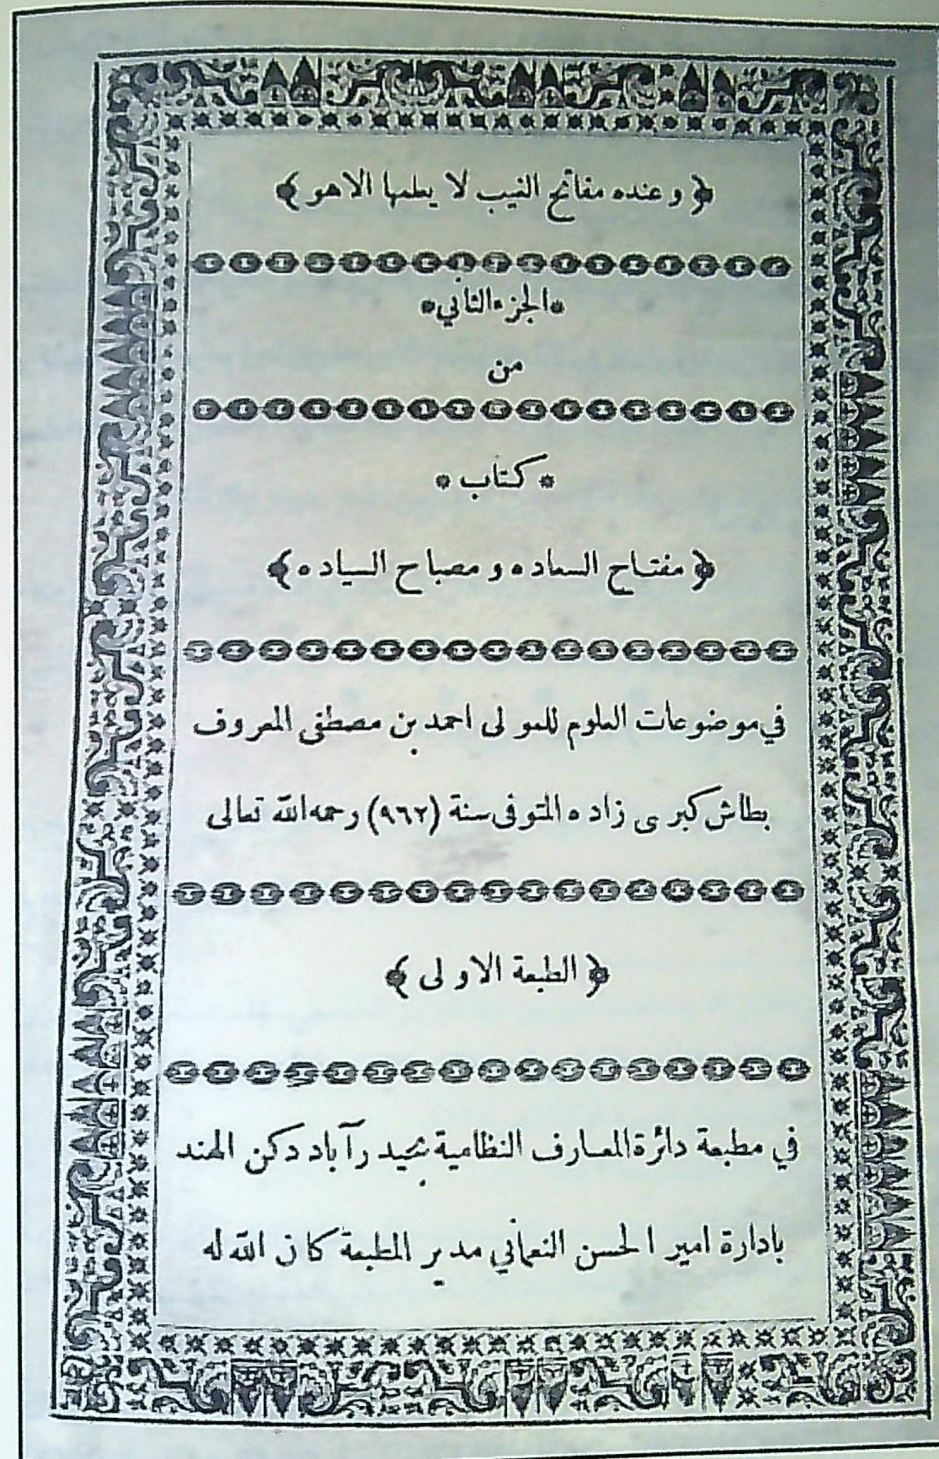 ﴿ وعنده مفاتح الغيب لا يعلمها الاهو ﴾
*الجزء الثاني*
من
* كتاب *
﴿ مفتاح السعاده و مصباح السياده ﴾
في موضوعات العلوم للمولى احمد بن مصطفى المعروف
بطاش كبرى زاده المتوفى سنة (٩٦٢) رحمه الله تعالى
﴿ الطبعة الاولى ﴾
في مطبعة دائرة المعارف النظامية بحيدرآباد دكن الهند
بادارة امير الحسن النعماني مدير المطبعة كان الله له